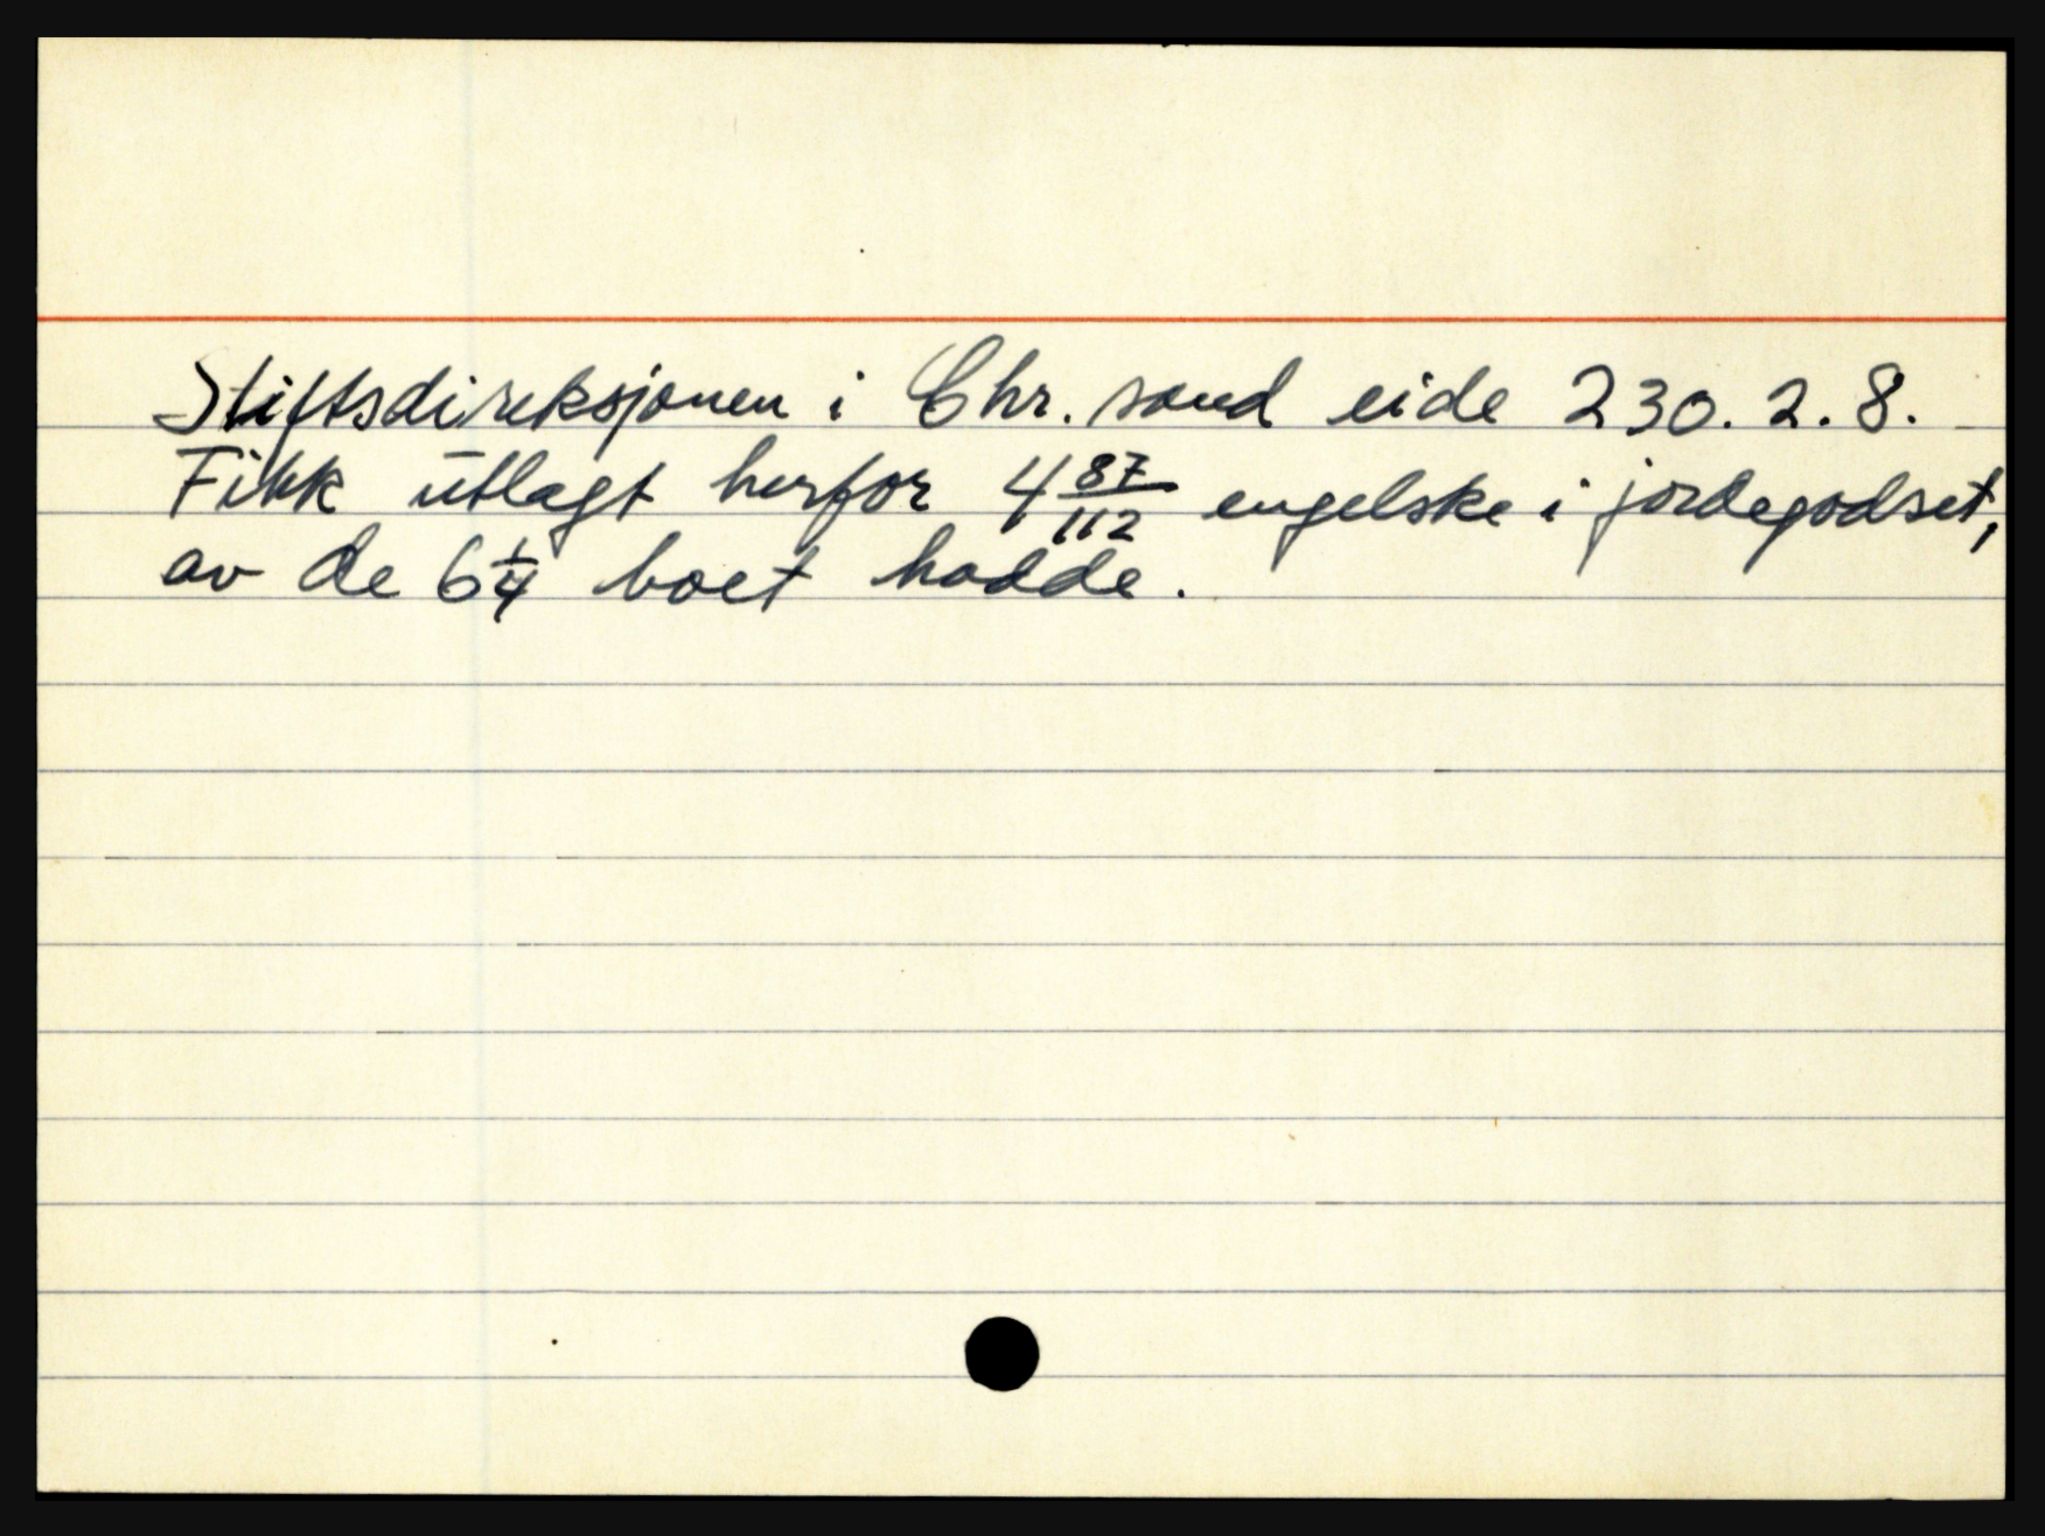 Stiftsdireksjonen i Chr. sand eide 230. 2. 8.
Fikk utlagt herfor 4 87/112 engelske i jordegodset,
av de 6 1/4 boet hadde.